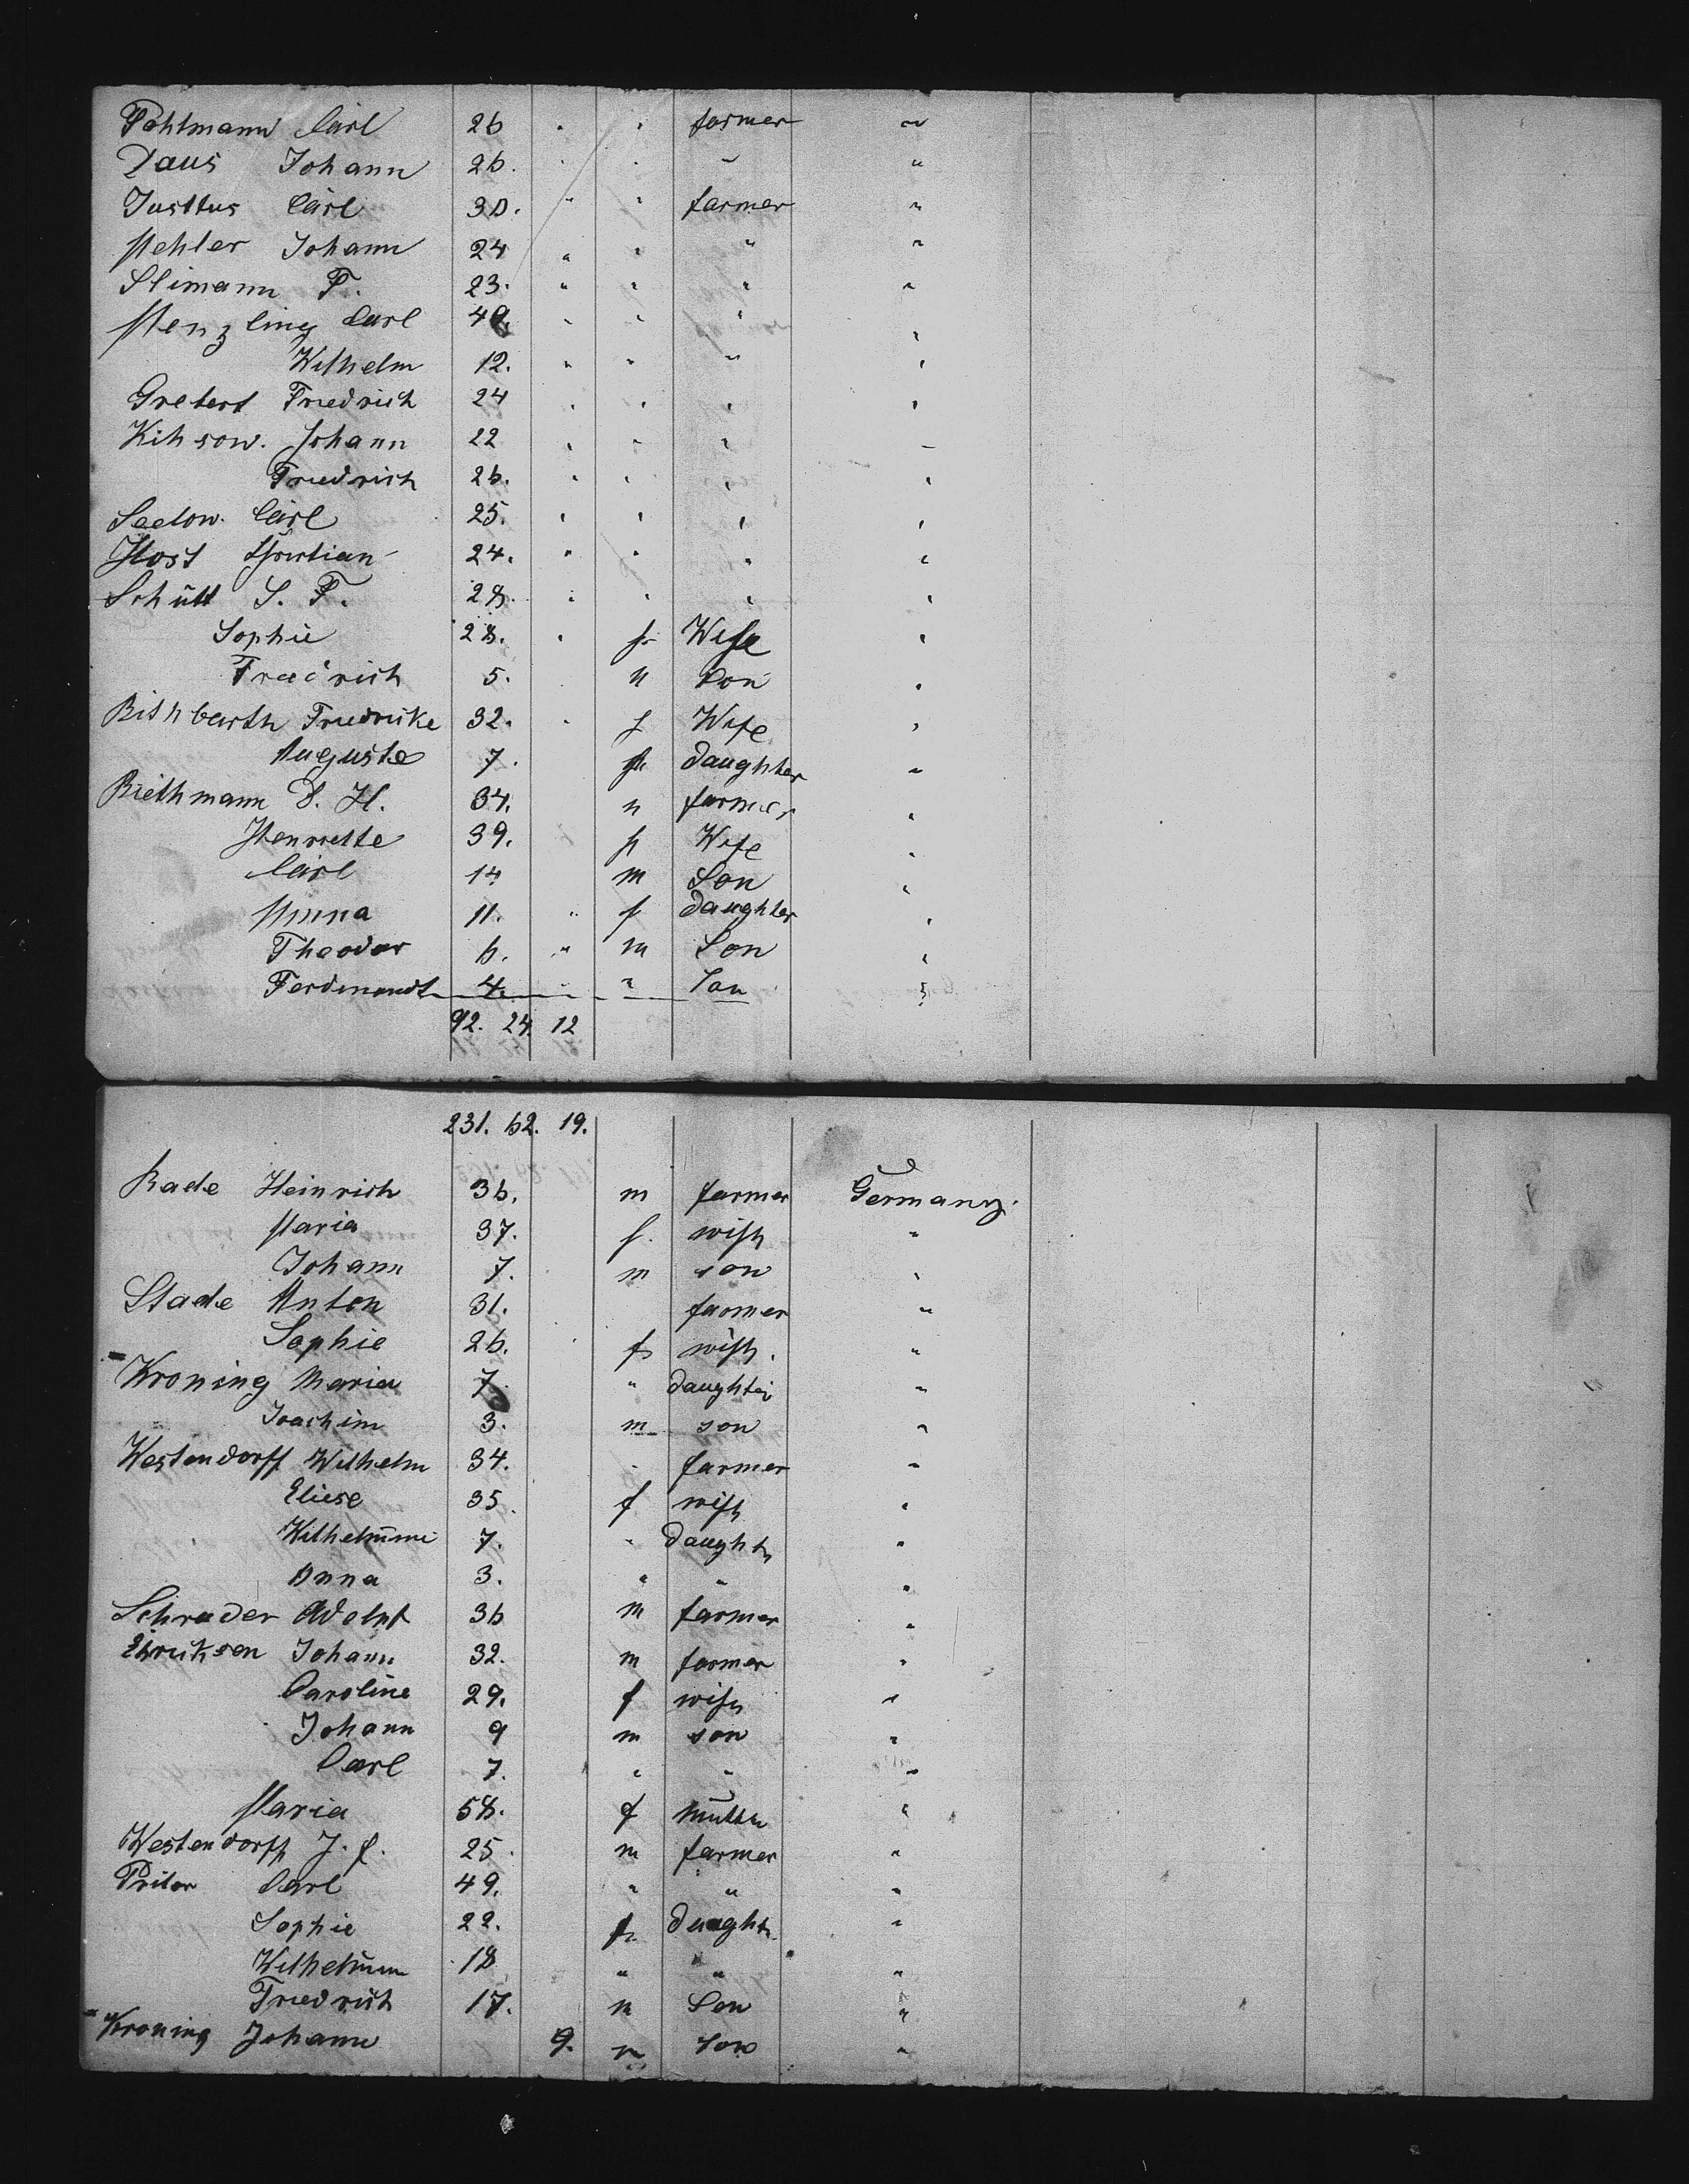 Pohlmann Carl 26 " " farmer "
Daus Johann 26. " " " "
Justtus Carl 30. " " farmer "
Mehler Johann 24 " " " "
Slimann F. 23. " " " "
Menzling Carl 49. " " " "
Wilhelm 12. " " " "
Gretert Friedrich 24 " " " "
Kihsow. Johann 22 " " " "
Friedrich 26. " " " "
Seelow. Carl 25. " " " "
Host Christian 24. " " " "
Schütt S. F. 28. " " " "
Sophie 28. " f Wife "
Friedrich 5. m Son "
Bithbarth Friedricke 32. " f Wife "
Auguste 7. f daughter "
Riethmann D. H. 34. m farmer "
Henriette 39. f Wife "
Carl 14. m Son "
Minna 11. " f daughter "
Theodor 6. " m Son "
Ferdinandt 4. " " Son "
92. 24. 12
231. 62. 19.
Rade Heinrich 36. m farmer Germany.
Maria 37. f. wife "
Johann 7. m son "
Stade Anton 31. farmer "
Sophie 26. f wife. "
Kroning Maria 7. " daughter "
Joachim 3. m son "
Westendorff Wilhelm 34. " farmer "
Eliese 35. f wife "
Wilhelmine 7. " daughter "
Anna 3. " " "
Schrader Adolpf 36 m farmer "
Johann 32. m farmer "
Caroline 29. f wife "
Johann 9 m son "
Carl 7. " " "
Maria 58. f mutter "
Westendorff J. f. 25. m farmer "
Carl 49. " " "
Sophie 22. f. daughter "
Wilhelmine 18 " " "
Friedrich 17. m Son "
Kroning Johann 9. m son "